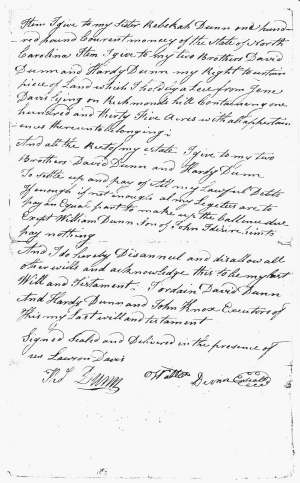 Item I give to my Sister Rebekah Dunn one hund-
red pound Courent money of the State of North
Carolina Item I give to my two Brothers David
Dunn and Hardy Dunn my Right to a certain
piece of Land which I hold by a Lese from Jane
Davis lying on Richmonds hill Containing one
hundred and thirty Five Acres with all appertain
ences thereunto belonging:
And all the Rest of my Estate I give to my two
Brothers David Dunn and Hardy Dunn
To settle up and pay of all my Lawful Debts
If enough if not enough all my Legetees are to
pay an Equal part to make up the ballence due
Exept William Dunn Son of John
pay nothing
And I do hereby Disannul and disallow all
other wills and acknowledge this to be my last
Will and Testament. I ordain David Dunn
And Hardy Dunn and John Knox Executors of
This my Last will and testament
Signed Seald and Delivered in the presence of
us Lawson Davis
Dunn